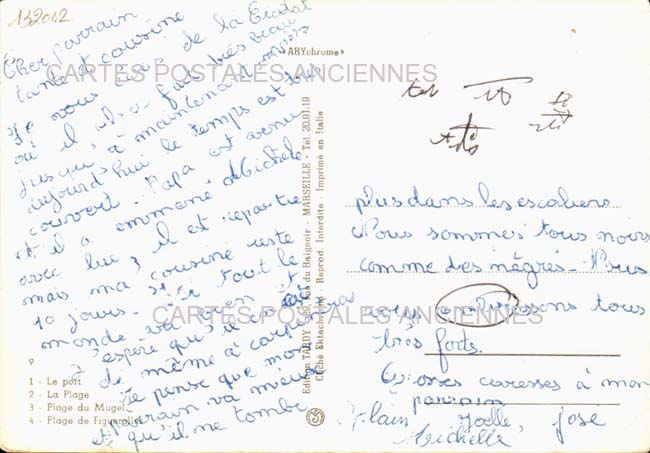 132012
Cher parrain
tante et cousine
Je vous écris de la Ciotat
où il a fait très beau
jusqu'à maintenant mais
aujourd'hui le temps est très
couvert. Papa est venu
et il a emmené Michèle
avec lui, il est reparti
mais ma cousine reste
10 jours. Ici tout le
monde va bien et
j'espère qu'il en est
de même à Carpentras
Je pense que mon
parrain va mieux
et qu'il ne tombe
plus dans les escaliers
Nous sommes tous noirs
comme des nègres. Nous
vous embrassons tous
très forts.
Grosses caresses à mon
parrain
Alain Joelle, José
Michelle
«ARYchrome»
CARTES POSTALES ANCIENNES
CARTES POSTALES ANCIENNES
Edition TARDY du Baignoir - MARSEILLE - Tél. 20.91.19
Cliché Ektachrome - Reprod. Interdite - Imprimé en Italie
9
1 - Le port
2 - La Plage
3 - Plage du Mugel
4 - Plage de Figuerolles